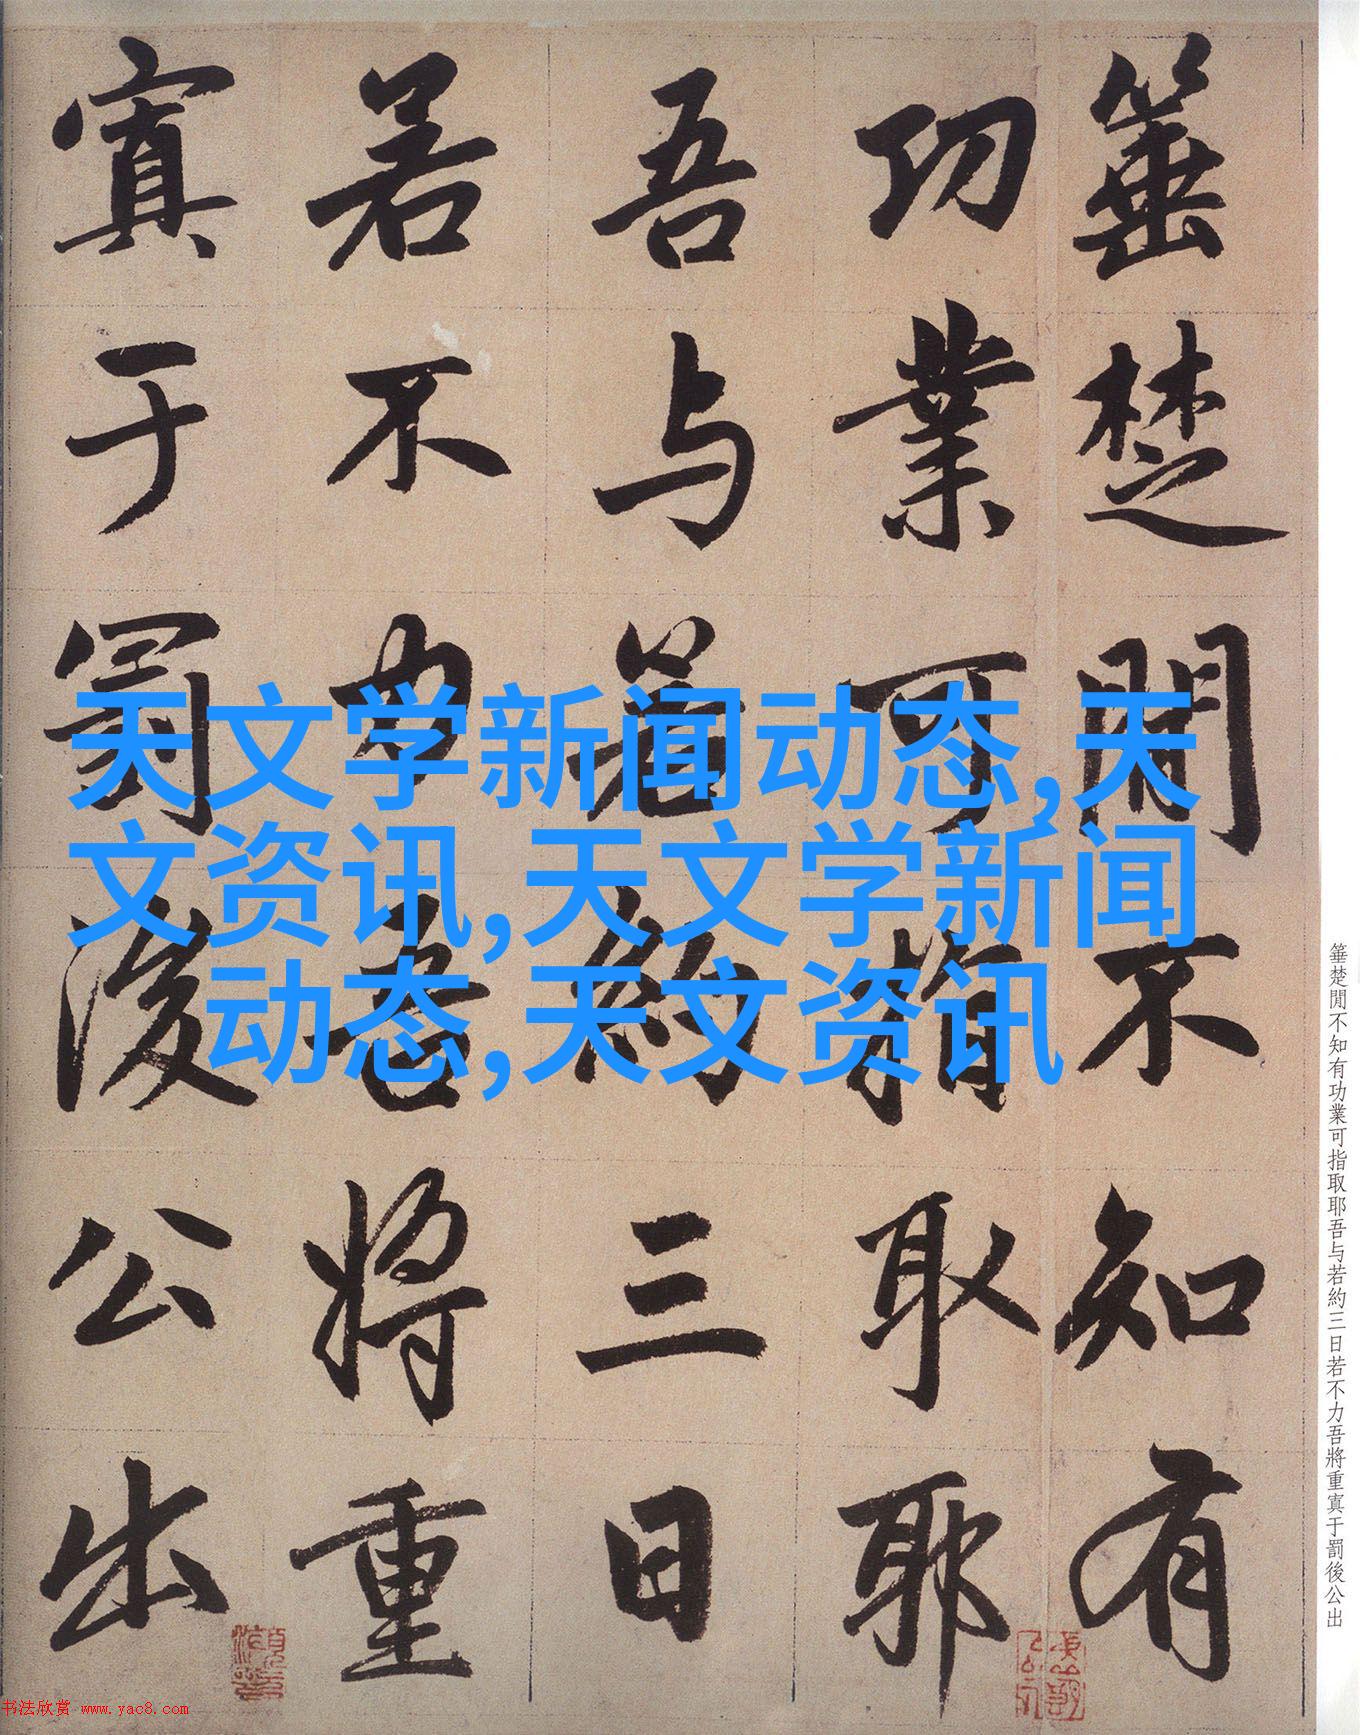 箠楚閒不知有
功業可指取耶
吾与若約三日
若不力吾將重
寘于罰後公出
天文学新闻动态,天
文资讯,天文学新闻
动态,天文资讯
箠楚閒不知有功業可指取耶吾与若約三日若不力吾將重寘于罰後公出
书法欣赏 www.yac8.com